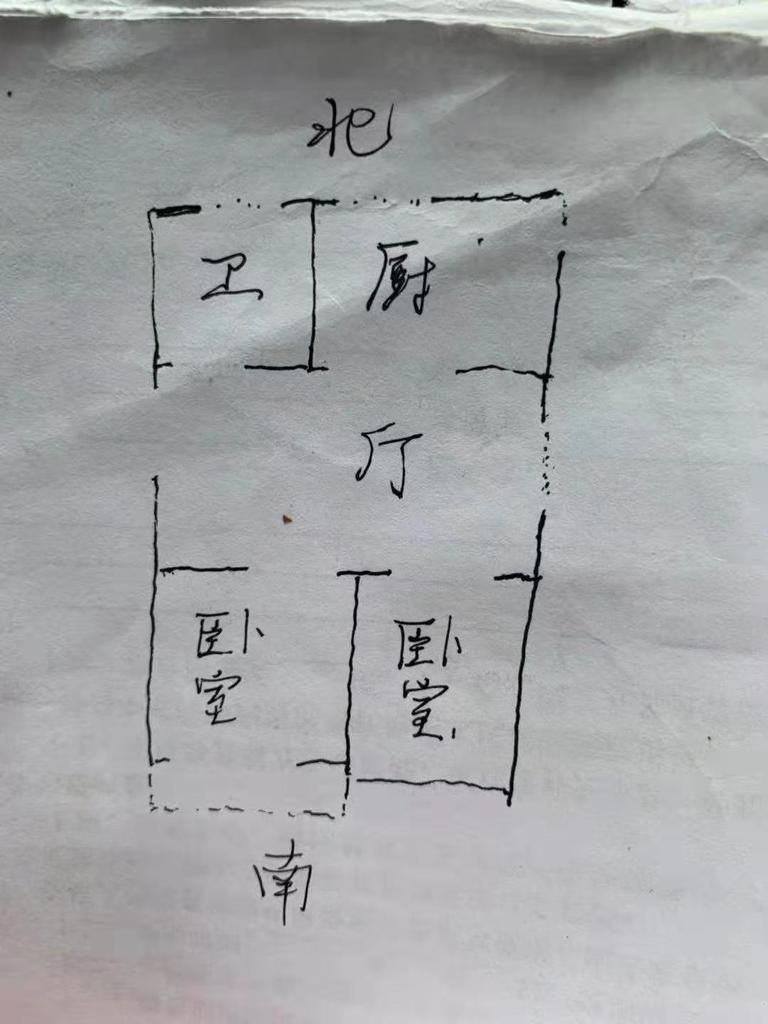 北
卫 厨
厅
卧室 卧室
南